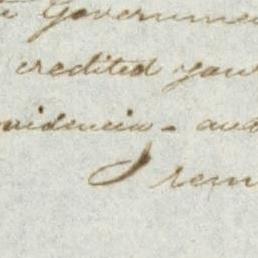 Governmen
credited your
evidencia - and
I rem